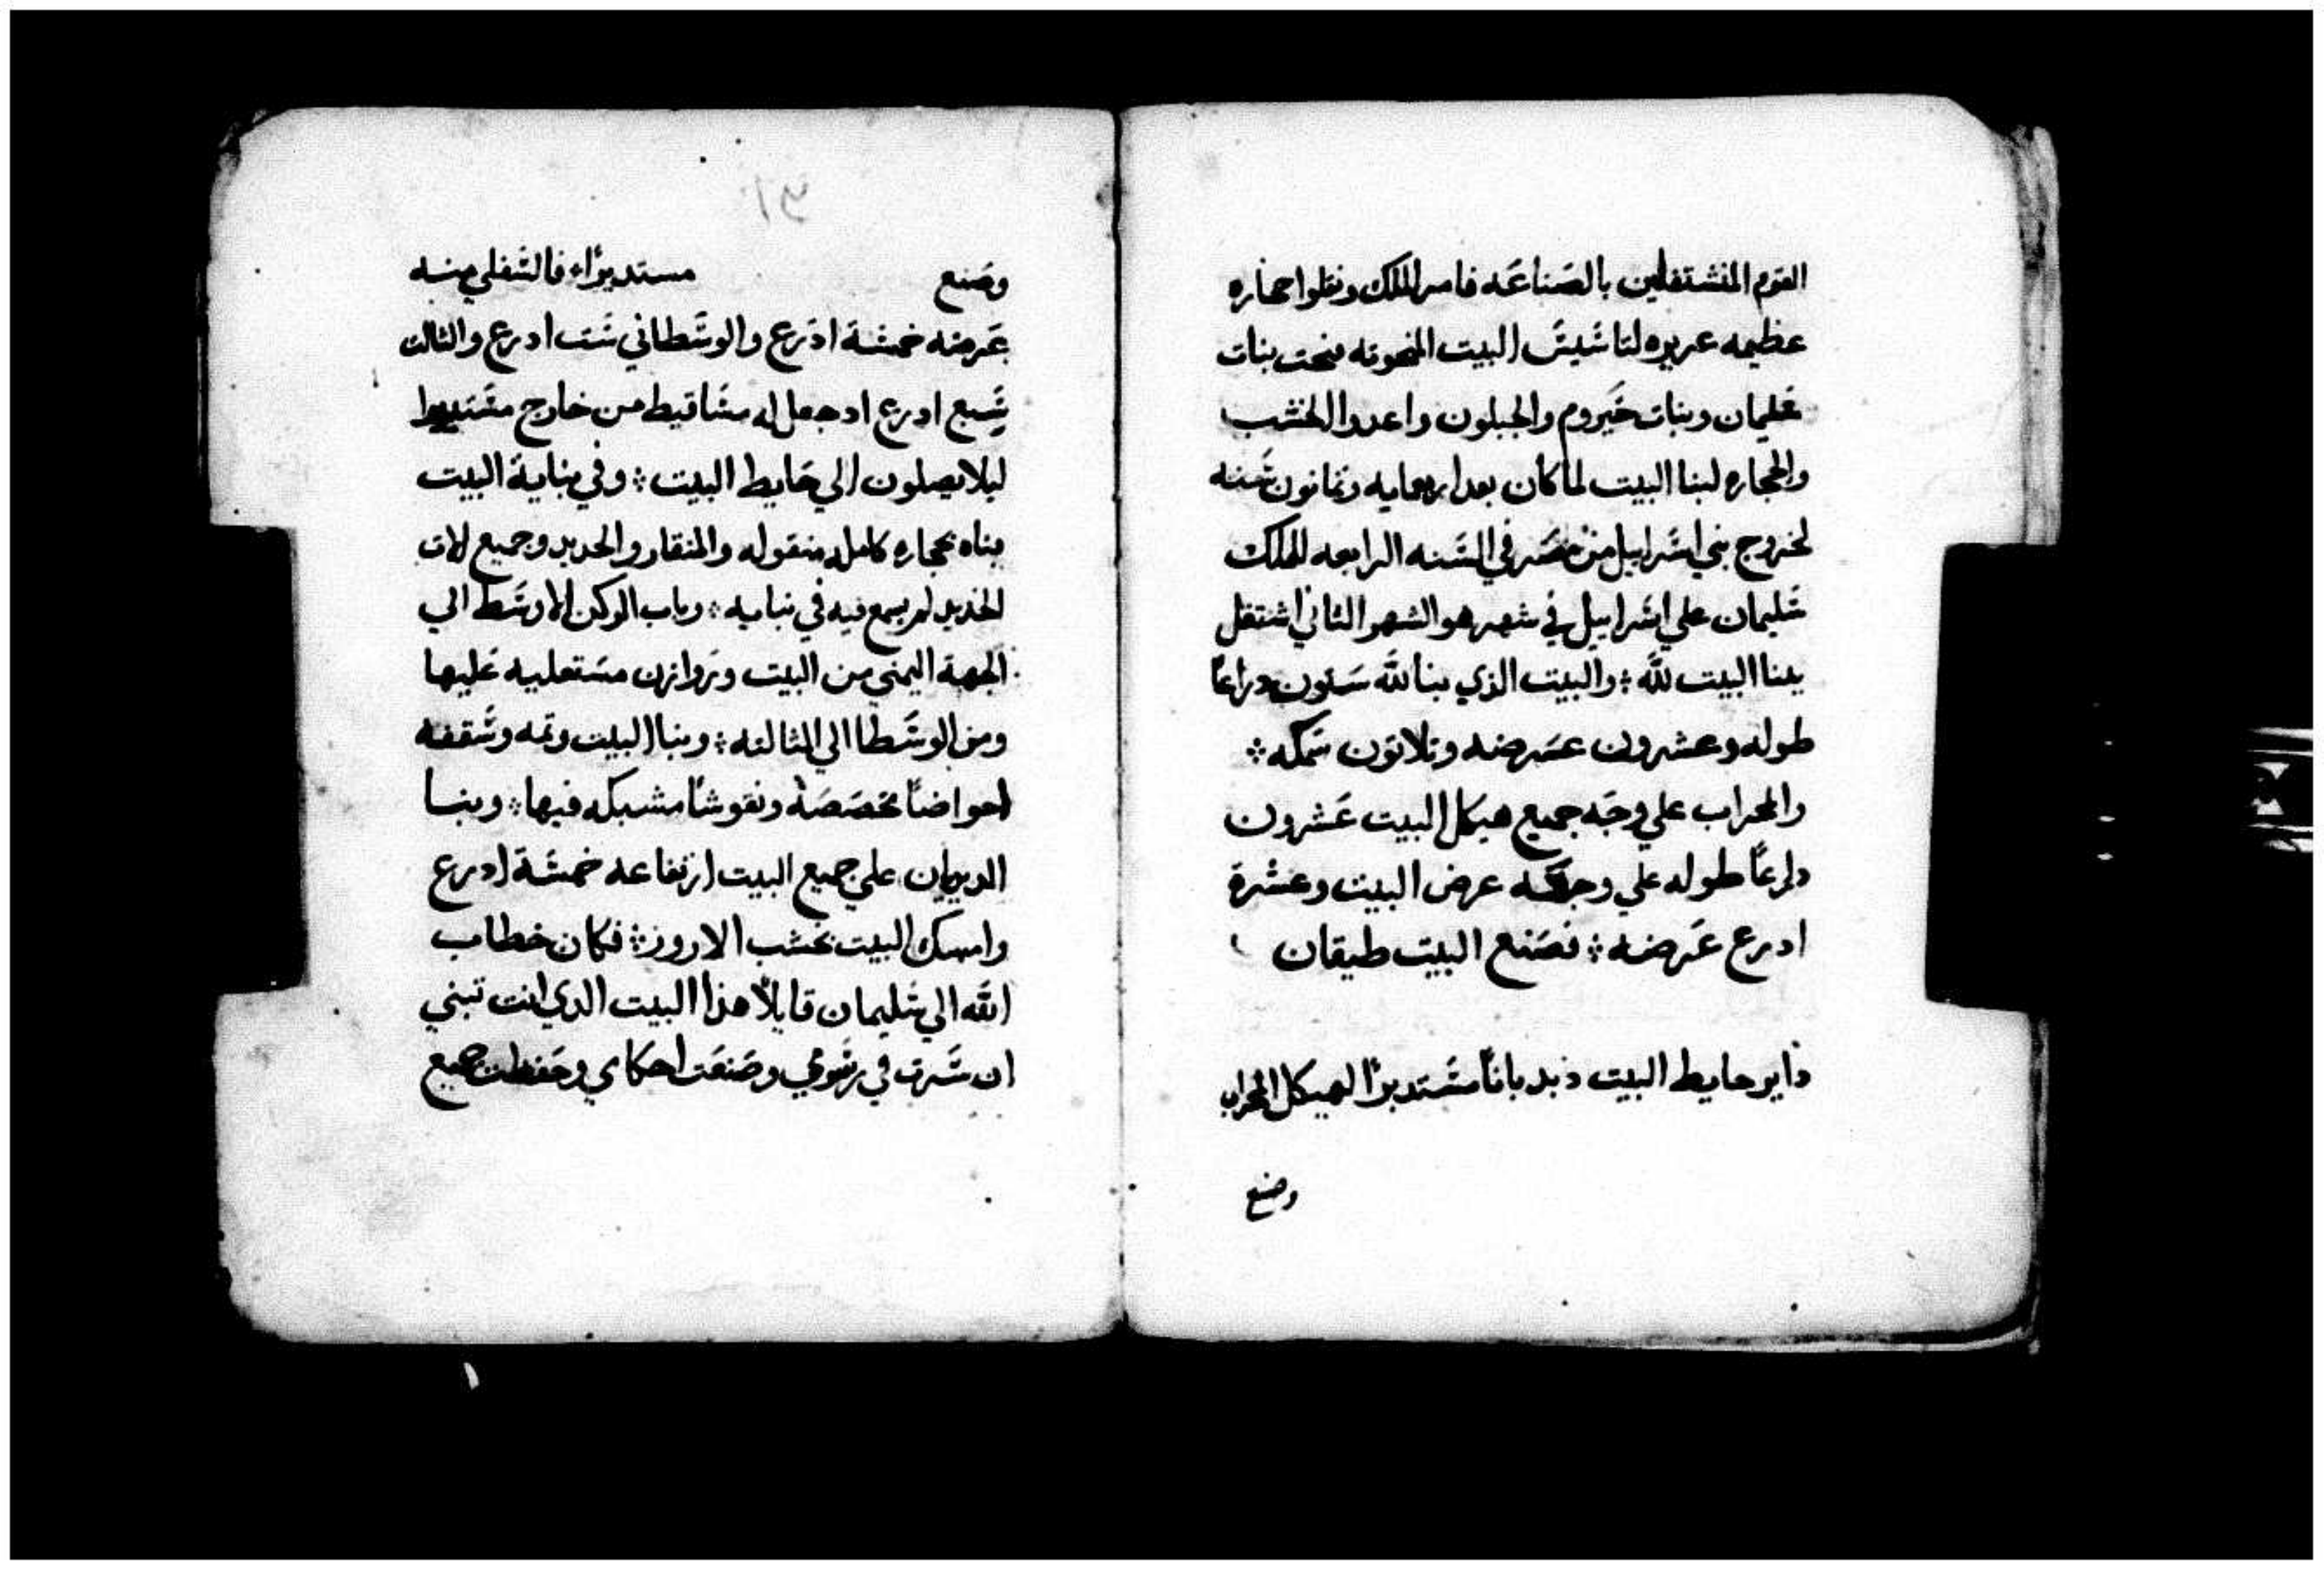 القوم المنشتغلين بالصناعه فامر الملك ونقلوا حجاره
عظيمه عزيزه لتاسيس البيت المنحوته فنحت بنات
سليمان وبنات حيروم والجبلون واعدوا الخشب
والحجاره لبنا البيت لما كان بعد اربعمايه وثمانون سنه
لخروج بني اسراييل من مصر في السنه الرابعه لملك
سليمان علي اسراييل في شهر هو الشهر الثاني اشتغل
ببنا البيت لله والبيت الذي بنا لله ستون دراعا
طوله وعشرون عرضه وثلاتون سمكه
والمحراب علي وجه جميع هيكل البيت عشرون
دراعا طوله علي وجه عرض البيت وعشرة
ادرع عرضه فصنع البيت طيقان
داير حايط البيت دبدبانا مستديرا لهيكل المحراب
وصنع
٣١
وصنع مستديرا فالسفلي منه
عرضه خمسة ادرع والوسطاني ست ادرع والثالث
سبع ادرع اد جعل له مساقيط من خارج مستديرا
ليلا يصلون الي حايط البيت وفي بناية البيت
بناه بحجاره كامله منقوله والمنقار والحديد وجميع الات
الحديد لم يسمع فيه في بنايه وباب الركن الاوسط الي
الجهة اليمني من البيت وروازن مستعليه عليها
ومن الوسطا الي الثالثه وبنا البيت وتمه وسقفه
احواضا مخصصة ونقوشا مشبكه فيها وبنا
الديوان علي جميع البيت ارتفاعه خمسة ادرع
وامسك البيت بخشب الارروز فكان خطاب
الله الي سليمان قايلا هذا البيت الدي انت تبني
ان سرت في رسومي وصنعت احكامي وحفظت جميع